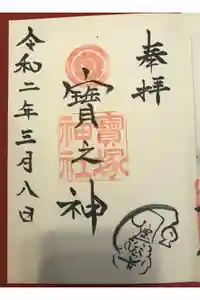 奉拝
寶之神
寶塚神社
令和二年三月八日